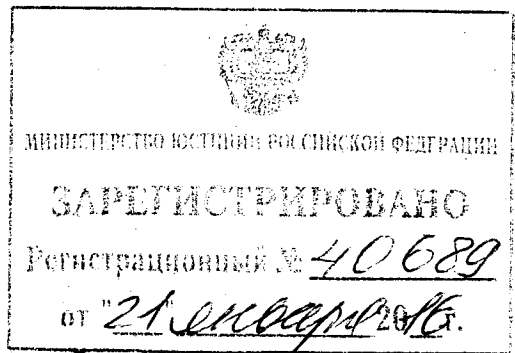 МИНИСТЕРСТВО ЮСТИЦИИ РОССИЙСКОЙ ФЕДЕРАЦИИ
ЗАРЕГИСТРИРОВАНО
Регистрационный № 40689
от "21" января 2016 г.